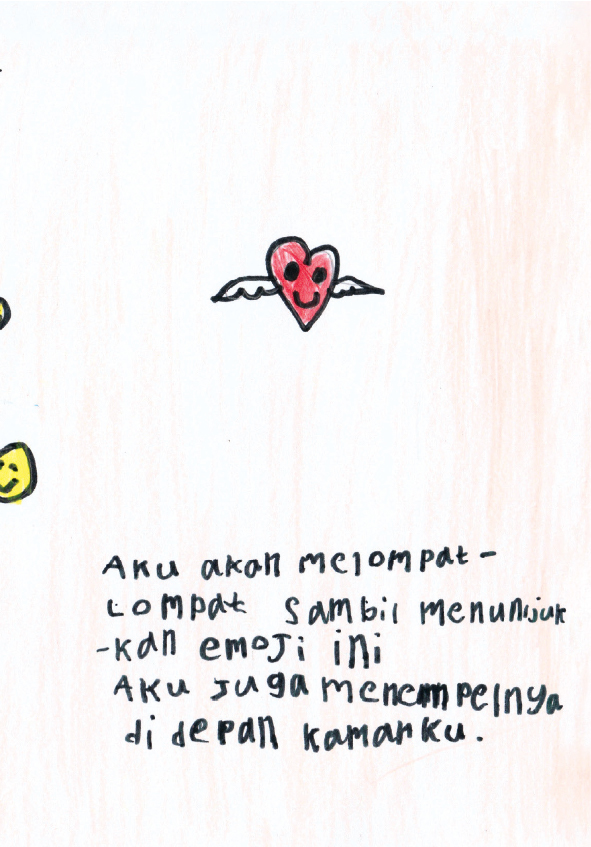 Aku akan melompat-
Lompat sambil menunjuk
-kan emoji ini
Aku juga menempelnya
di depan kamarku.